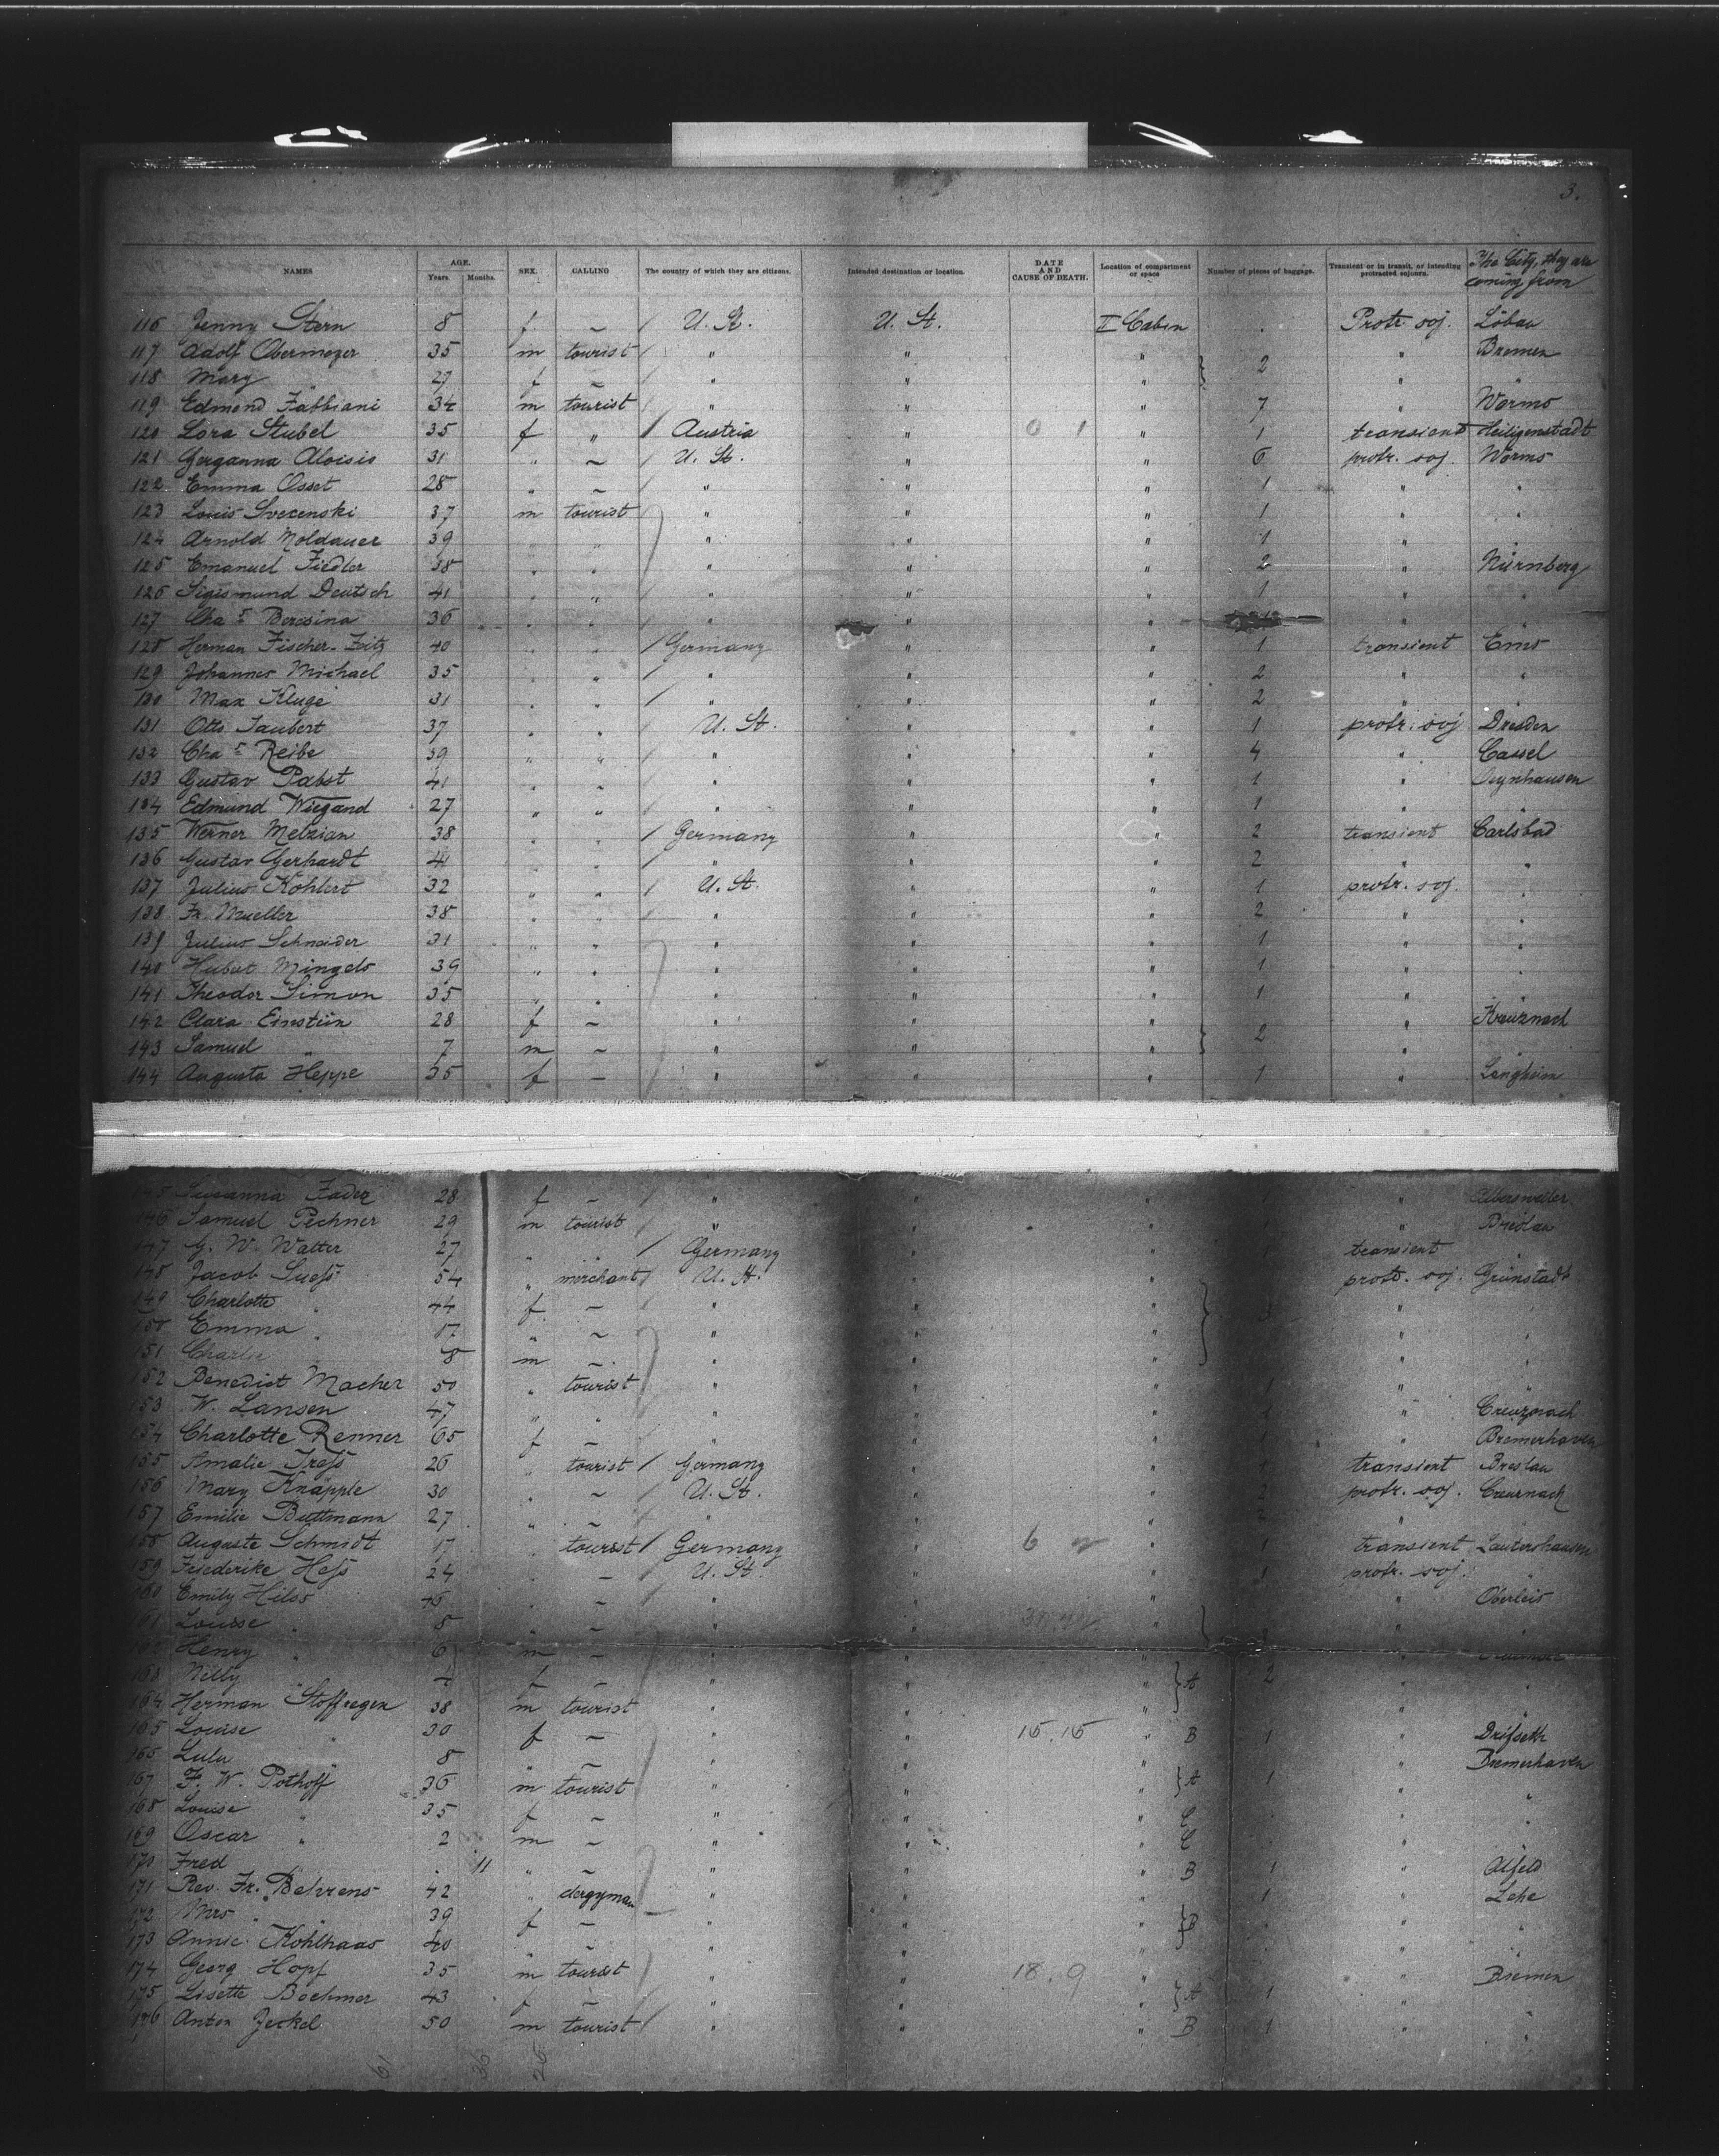 3.
NAMES AGE. Years. Months. SEX. CALLING The country of which they are citizens. Intended destination or location. DATE AND CAUSE OF DEATH. Location of compartment or space Number of pieces of baggage. Transient or in transit, or intending protracted sojourn. The City, they are coming from
116 Jenny Stern 8 f – / U. St. U. St. II Cabin . Protr. soj. Löbau
117 Adolf Obermeyer 35 m tourist / " " " 2 " Bremen
118 Mary " 27 f – / " " " " "
119 Edmond Fabbiani 34 m tourist / " " " 7 " Worms
120 Lora Stubel 35 f " / Austria " 0 1 " 1 transient Heiligenstadt
121 Gerganna Aloisio 31 " – / U. St. " " 6 protr. soj. Worms
122 Emma Osset 28 " – / " " " 1 " "
123 Louis Svecenski 37 m tourist " " " 1 " "
124 Arnold Moldauer 39 " " " " " 1 "
125 Emanuel Fiedler 38 " " " " " 2 " Nürnberg
126 Sigismund Deutsch 41 " " / " " " 1 " "
127 Cha s Beresina 36 " " / " " " " "
128 Herman Fischer-Zeitz 40 " " / Germany " " 1 transient Ems
129 Johannes Michael 35 " " / " " " 2 " "
130 Max Kluge 31 " " / " " " 2 " "
131 Otto Taubert 37 " " U. St. " " 1 protr. soj Dresden
132 Cha s Reibe 39 " " / " " " 4 " Cassel
133 Gustav Pabst 41 " " / " " " 1 " Oeynhausen
134 Edmund Wiegand 27 " " / " " " 1 " "
135 Werner Melzian 38 " " / Germany " " 2 transient Carlsbad
136 Gustav Gerhardt 41 " " " " " 2 " "
137 Julius Kohlert 32 " " / U. St. " " 1 protr. soj. "
138 Fr. Mueller 38 " " / " " " 2 " "
139 Julius Schneider 31 " " " " " 1 " "
140 Hubert Mingels 39 " " " " " 1 " "
141 Theodor Simon 35 " " " " " 1 " "
142 Clara Einstein 28 f – " " " 2 " Kreuznach
143 Samuel " 7 m – " " " " "
144 Augusta Heppe 35 f – / " " " 1 " Langheim
145 Susanna Fader 28 f – / " " " 1 " Albersweiler
146 Samuel Pechner 29 m tourist / " " " " Breslau
147 G. W. Walter 27 " " / Germany " " transient
148 Jacob Suess 54 " merchant / U. St. " " protr. soj. Grünstadt
149 Charlotte " 44 f – / " " " 3 " "
150 Emma " 17 " – " " " " "
151 Charlie 8 m – " " " " "
152 Benedict Macher 50 " tourist " " " " "
153 W. Lansen 47 " " / " " " " Creuznach
154 Charlotte Renner 65 f – / " " " " Bremerhaven
155 Amalie Tress 26 " tourist / Germany " " 1 transient Breslau
156 Mary Knäpple 30 " – / U. St. " " 2 protr. soj. Creuznach
157 Emilie Buttmann 27 " – / " " " 2 " "
158 Auguste Schmidt 17 " tourist / Germany " 6 " 1 transient Lautershausen
159 Friederike Hess 24 " – / U. St. " " 1 protr. soj. "
160 Emily Hilss 46 " – / " " " " Oberleis
161 Louise " 8 " – " " " "
162 Henry " 6 m – " " " "
163 Nelly " f – " " " A 2 " "
164 Herman Stoffregen 38 m tourist " " " "
165 Louise " 30 f – " " 15.15 " B 1 " Drifseth
166 Lulu " 8 " – " " " " Bremerhaven
167 F. W. Pothoff 36 m tourist " " " A 1 " "
168 Louise " 35 f – " " " C " "
169 Oscar " 2 m – " " " C "
170 Fred 11 " – " " " B 1 " Alfeld
171 Rev. Fr. Behrens 42 " clergyman " " " 1 " Lehe
172 Mrs " " 39 f – " " " B " "
173 Annie Kohlhaas 40 " – " " " " "
174 Georg Hopf 35 m tourist " " 18.9 " " Bremen
175 Lisette Boehmer 43 f – " " " A 1 " "
176 Anton Jeckel 50 m tourist / " " " B 1 " "
61 36 26